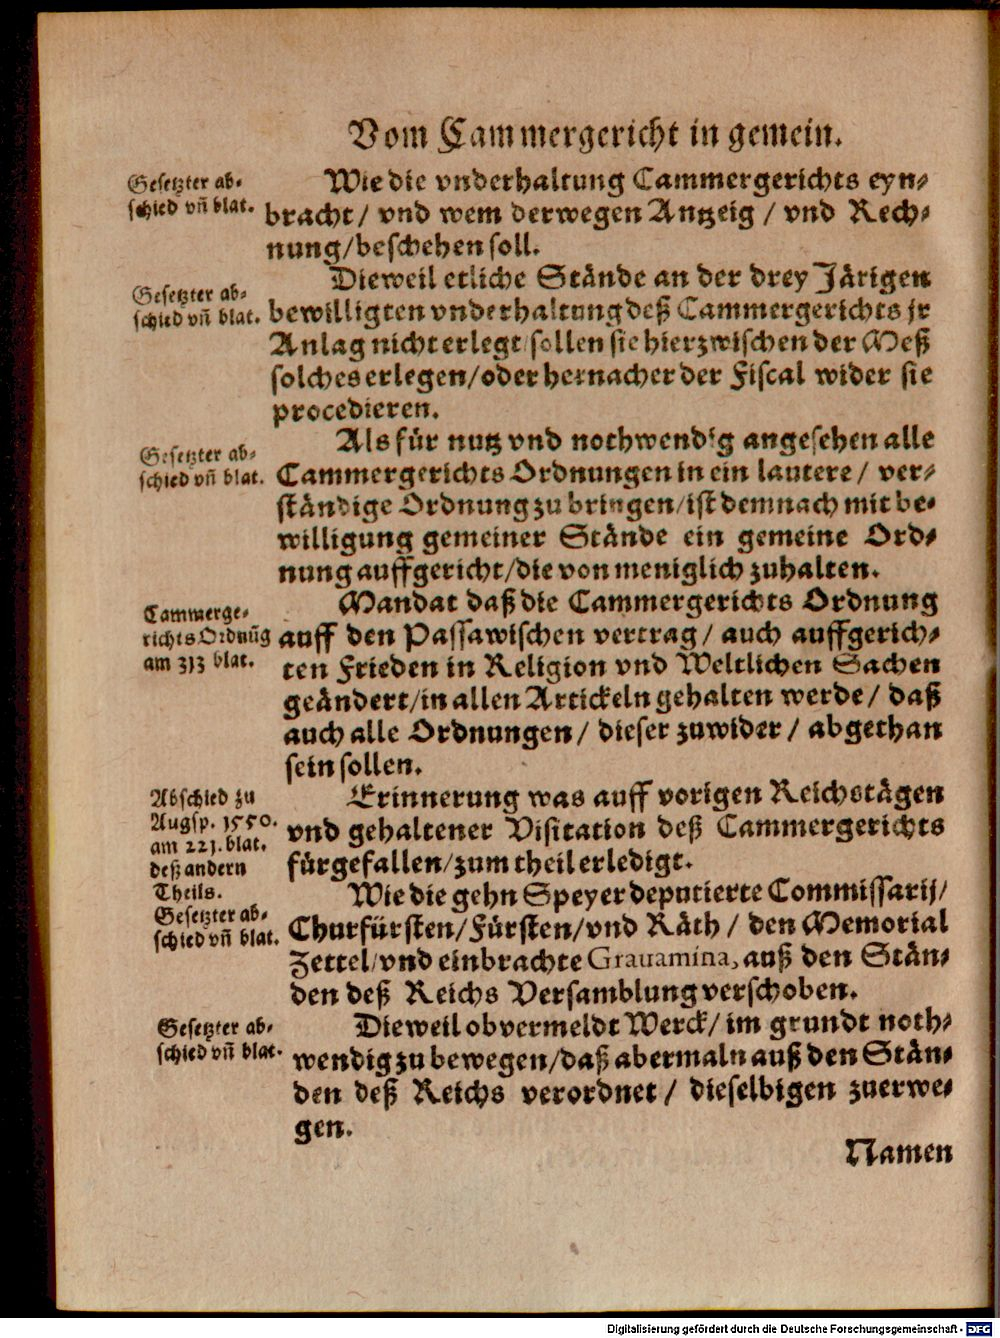 Vom Cammergericht in gemein.
Gesetzter ab-
schied vñ blat.
Wie die vnderhaltung Cammergerichts eyn-
bracht / vnd wem derwegen Antzeig / vnd Rech-
nung / beschehen soll.
Gesetzter ab-
schied vñ blat.
Dieweil etliche Stände an der drey Järigen
bewilligten vnderhaltung deß Cammergerichts jr
Anlag nicht erlegt / sollen sie hierzwischen der Meß
solches erlegen / oder hernacher der Fiscal wider sie
procedieren.
Gesetzter ab-
schied vñ blat.
Als für nutz vnd nothwendig angesehen alle
Cammergerichts Ordnungen in ein lautere / ver-
ständige Ordnung zu bringen / ist demnach mit be-
willigung gemeiner Stände ein gemeine Ord-
nung auffgericht / die von meniglich zuhalten.
Cammerge-
richts Ordnũg
am 313 blat.
Mandat daß die Cammergerichts Ordnung
auff den Passawischen vertrag / auch auffgerich-
ten Frieden in Religion vnd Weltlichen Sachen
geändert / in allen Artickeln gehalten werde / daß
auch alle Ordnungen / dieser zuwider / abgethan
sein sollen.
Abschied zu
Augsp. 1550.
am 221. blat.
deß andern
Theils.
Erinnerung was auff vorigen Reichstägen
vnd gehaltener Visitation deß Cammergerichts
fürgefallen / zum theil erledigt.
Gesetzter ab-
schied vñ blat.
Wie die gehn Speyer deputierte Commissarij /
Churfürsten / Fürsten / vnd Räth / den Memorial
Zettel / vnd einbrachte Grauamina, auß den Stän-
den deß Reichs Versamblung verschoben.
Gesetzter ab-
schied vñ blat.
Dieweil obvermeldt Werck / im grundt noth-
wendig zu bewegen / daß abermaln auß den Stän-
den deß Reichs verordnet / dieselbigen zuerwe-
gen.
Namen
Digitalisierung gefördert durch die Deutsche Forschungsgemeinschaft - DFG